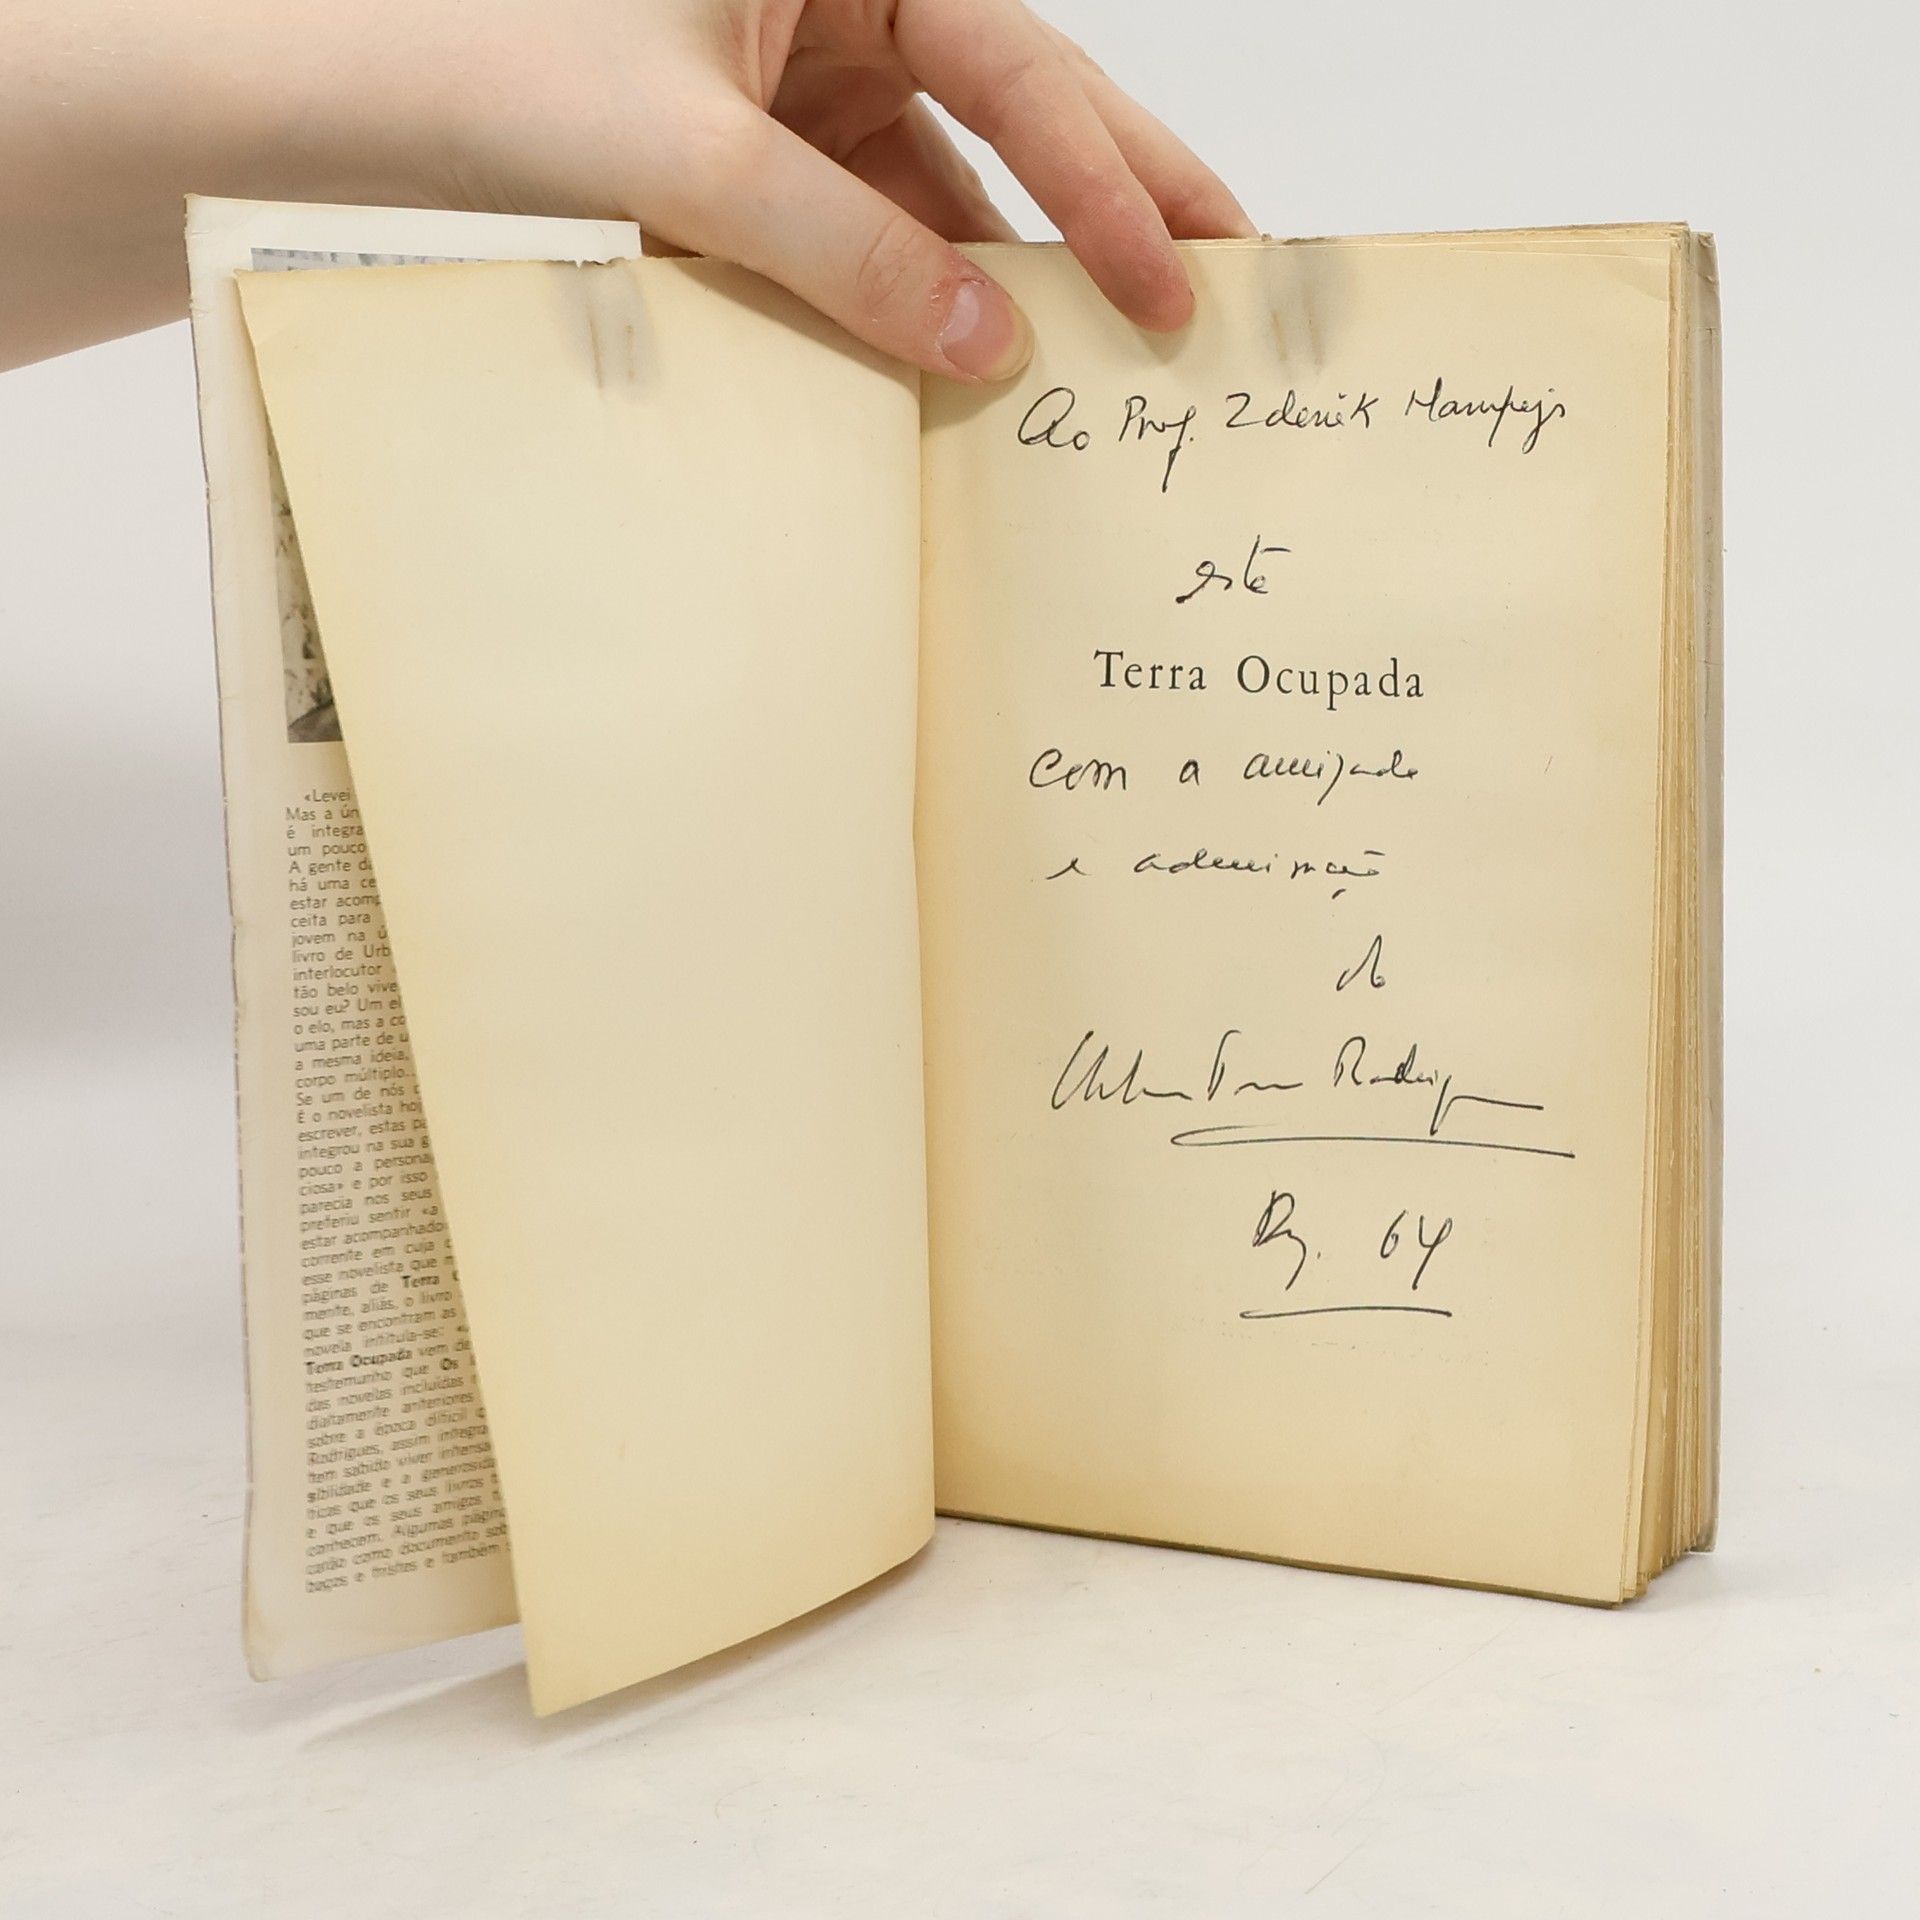 «Levei
Mas a ún
é integra
um pouco
A gente da
há uma ce
estar acomp
ceita para
jovem na ú
livro de Urb
interlocutor
tão belo vive
sou eu? Um el
o elo, mas a co
uma parte de u
a mesma ideia,
corpo múltiplo...
Se um de nós
É o novelista hoj
escrever, estas pá
integrou na sua g
pouco a persona
ciosa» e por isso
parecia nos seus
preferiu sentir «a
estar acompanhado
corrente em cuja c
esse novelista que
páginas de Terra
mente, aliás, o livro
que se encontram as
novela intitula-se:
Terra Ocupada vem de
testemunho que Os
das novelas incluídas
diatamente anteriores
sobre a época difícil
Rodrigues, assim integra
tem sabido viver intensa
sibilidade e a generosida
ticas que os seus livros
e que os seus amigos
conhecem. Algumas págin
carão como documento sob
bagos e tristes e também
Ao Prof. Zdeněk Hampejs
este
Terra Ocupada
com a amizade
e admiração
do
Urbano Tavares Rodrigues
64